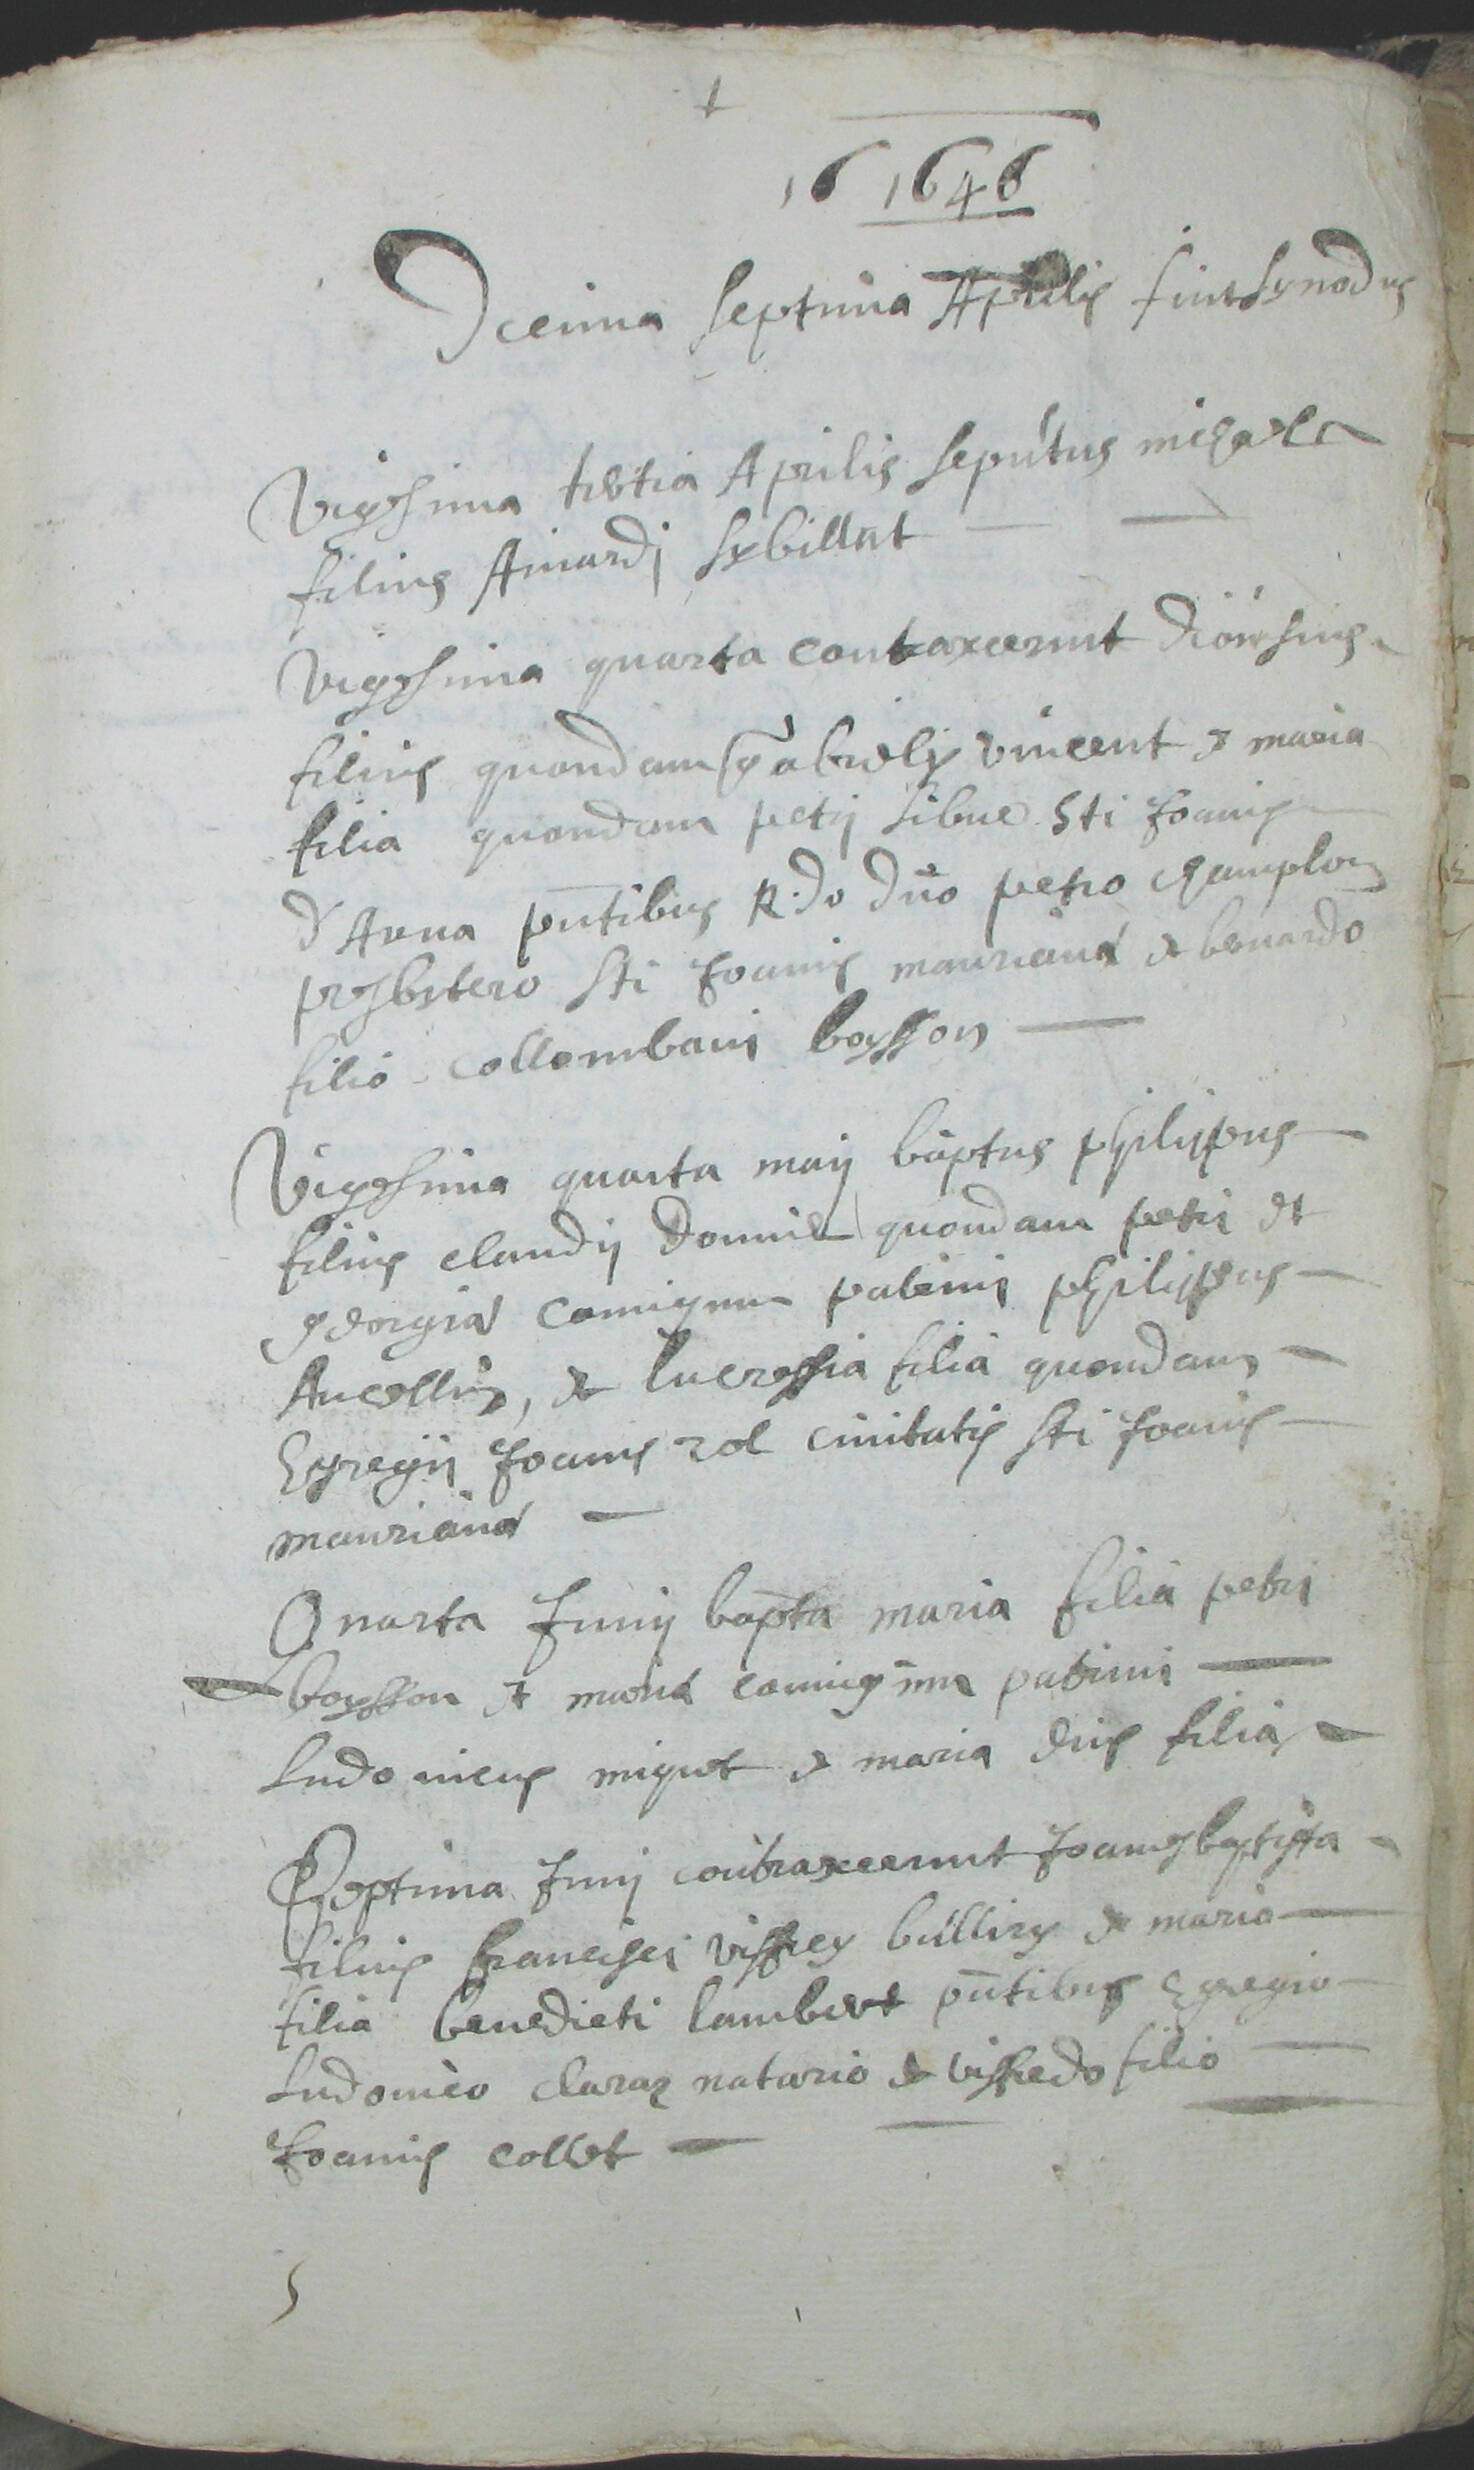 16 1646
Decima septima Aprilis fuit synodus
Vigesima tertia Aprilis sepultus michael
filius Aimardi sybillat
Vigesima quarta contraxerunt dionisius
filius quondam gabrielis vincent & maria
filia quondam petri sibue sti Joanis
d'Arva pntibus R.do dno petro champlon
presbytero sti Joannis maurianæ & bernardo
filio collombani boysson
Vigesima quarta maij baptus philippus
filius claudij dommel quondam petri et
georgiæ coniugum patrini philippus
Ancellin, & lucressia filia quondam
Egregij Joanis rol civitatis sti Joanis
maurianæ
Quarta Junij bapta maria filia petri
boysson et mariæ coniugum patrini
Ludovicus miguet & maria eius filia
Septima Junij contraxerunt Joannes baptista
filius francisci viffrey bulliry & maria
filia benedicti lambert pntibus Egregio
Ludovico claraz notario & viffredo filio
Joannis collet